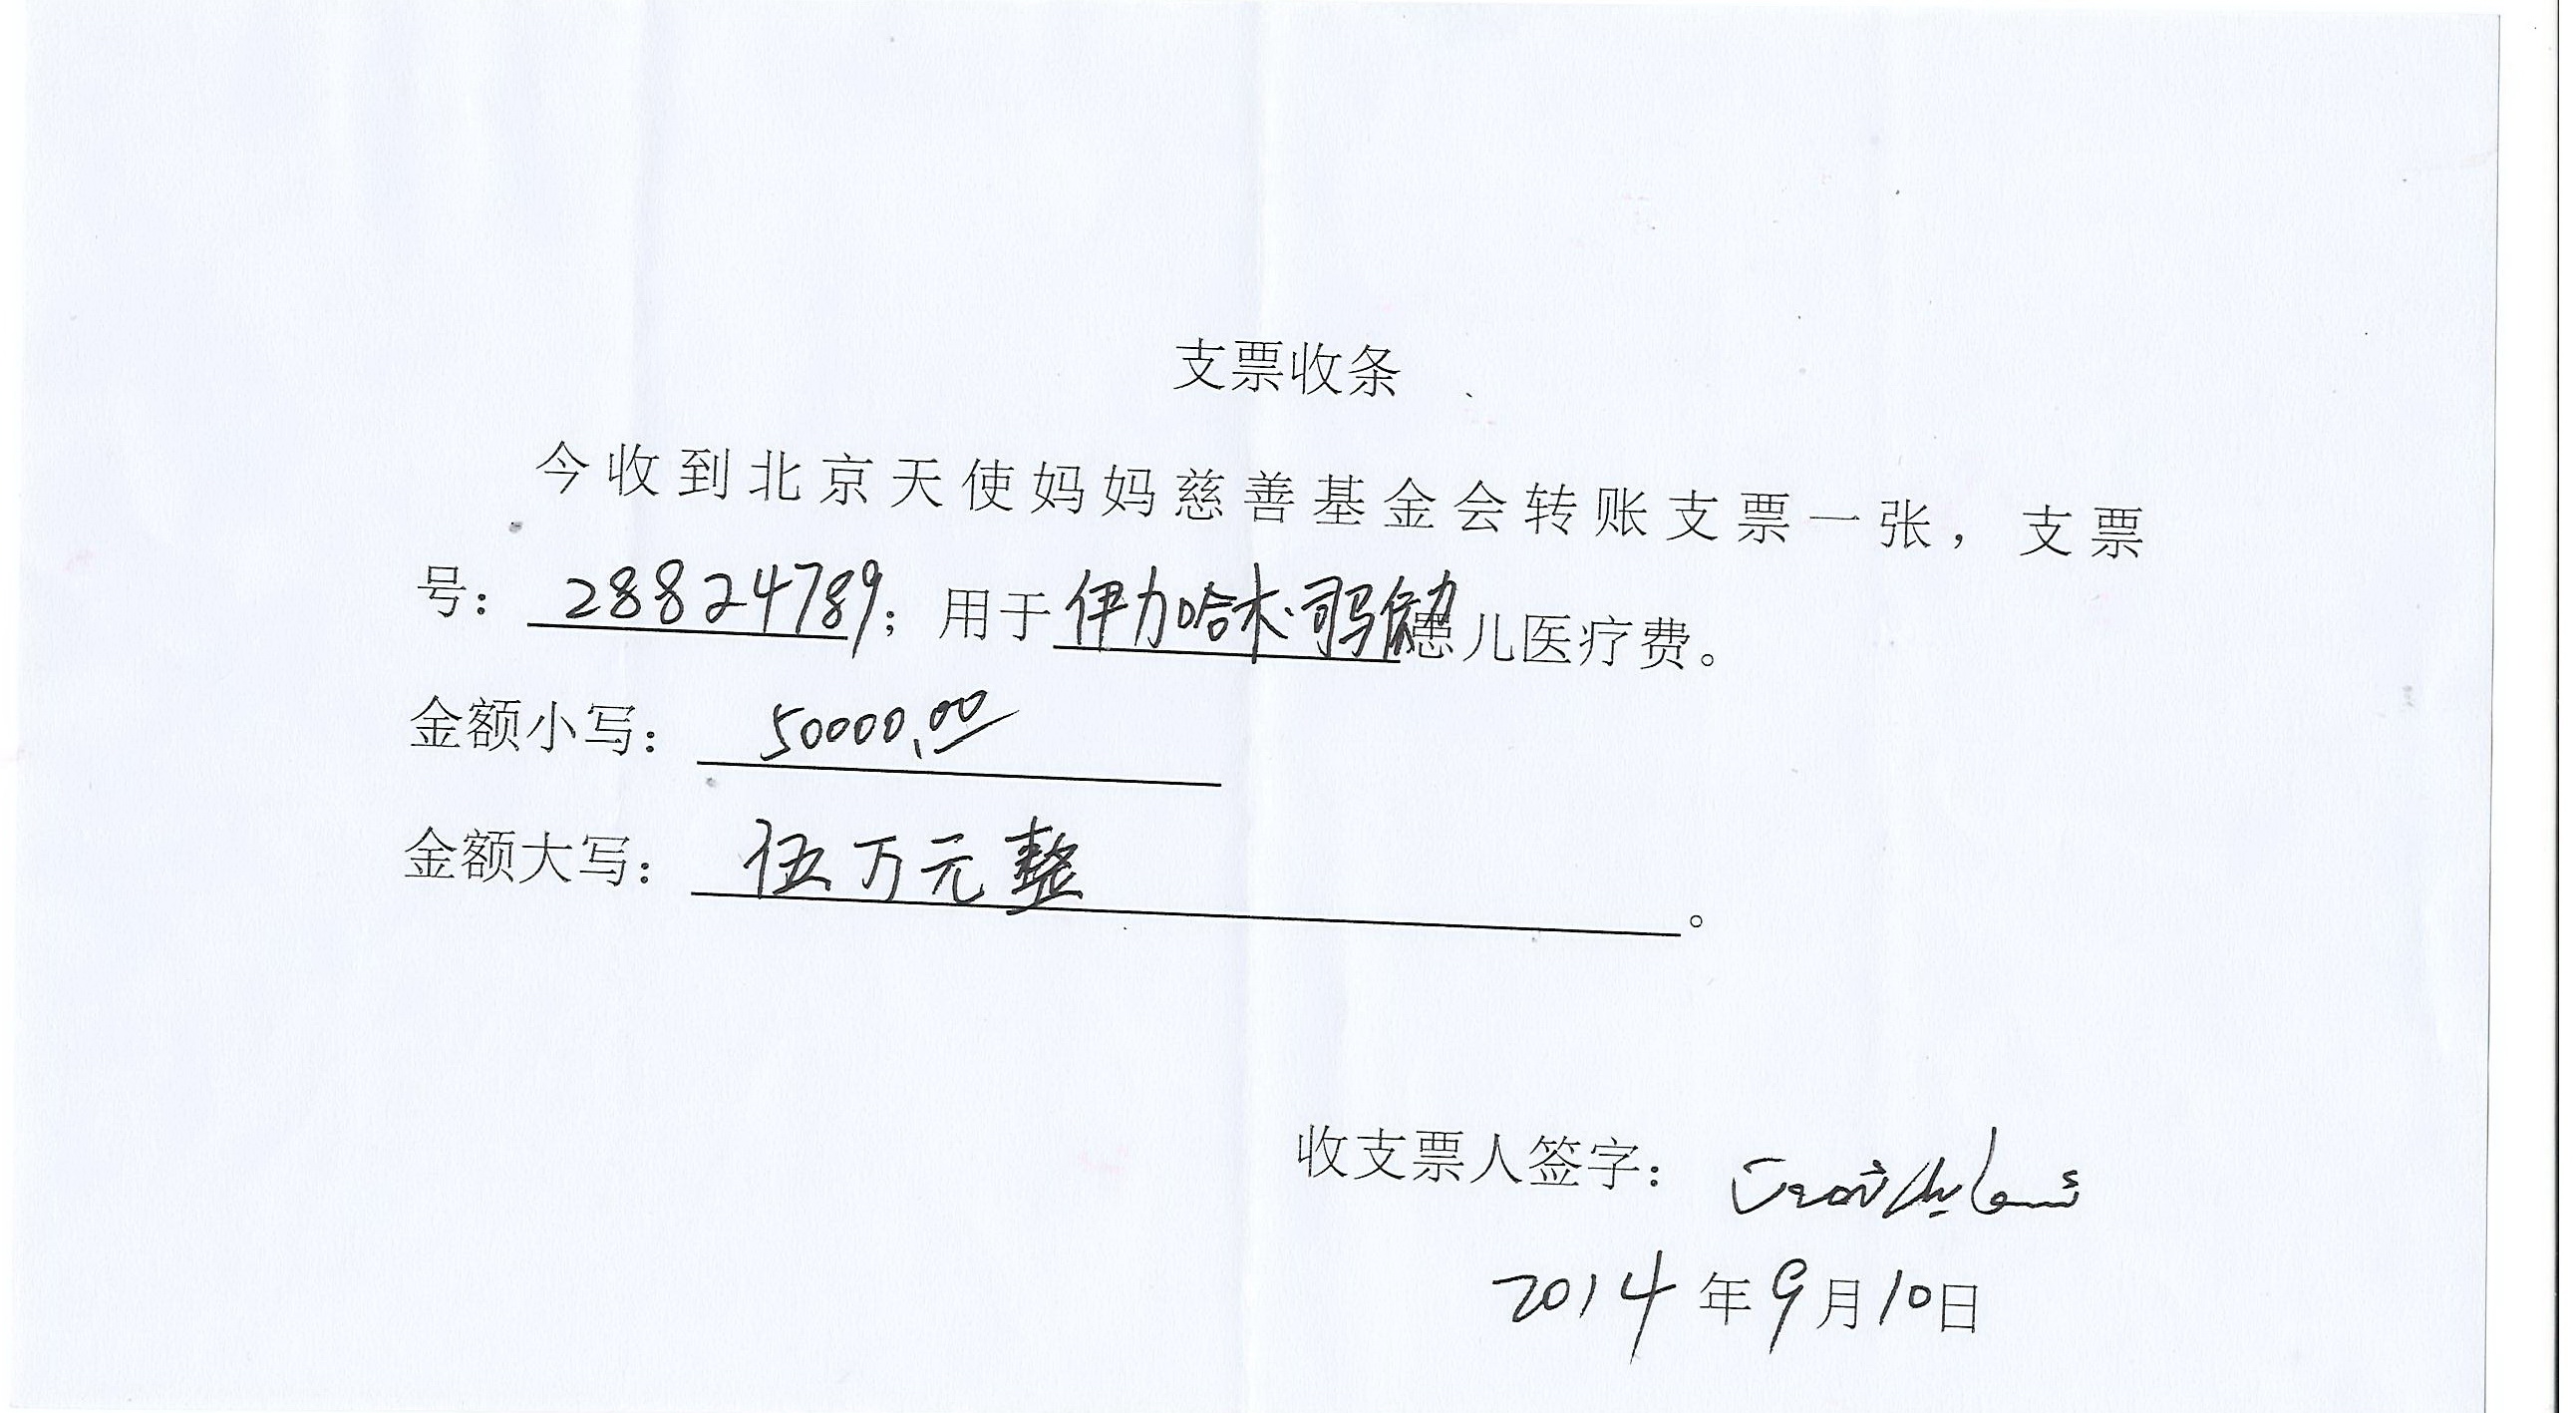 支票收条
今收到北京天使妈妈慈善基金会转账支票一张，支票
号：28824789；用于伊力哈木·司马 患儿医疗费。
金额小写：50000.00
金额大写：伍万元整。
收支票人签字：
2014年9月10日